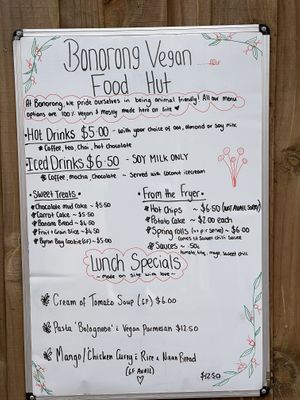 Bonorong Vegan
Food Hut
At Bonorong, we pride ourselves in being animal friendly! All our menu
options are 100% vegan & mostly made here on site ♥
• Hot Drinks $5.00 - with your choice of oat, almond or soy milk
* Coffee, tea, chai, hot chocolate
• Iced Drinks $6.50 - SOY MILK ONLY
* Coffee, mocha, chocolate - Served with coconut icecream
• Sweet Treats •
* Chocolate mud cake ~ $5.50
* Carrot Cake ~ $5.50
* Banana Bread ~ $4.50
* Fruit & Grain Slice ~ $4.50
* Byron Bay Cookie (GF) ~ $5.00
• From the Fryer •
* Hot Chips ~ $6.50
* Potato Cake ~ $2.00 each
* Spring rolls ( per serve) ~ $6.00
(comes w sweet chilli sauce
* Sauces ~ .50c
tomato, bbq, mayo, sweet chilli
Lunch Specials
~ made on site with love ~
Cream of Tomato Soup (GF) $6.00
Pasta 'Bolognese' & Vegan Parmesan $12.50
Mango/Chicken Curry & Rice & Naan Bread
(GF AVAIL)
$12.50